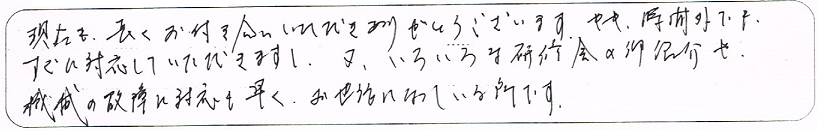 現在も、長くお付き合いいただきありがとうございます。やや、時間外でも、
すぐに対応していただきますし、又、いろいろな研修会の御紹介や、
機械の故障に対応も早く、お世話になっている所です。